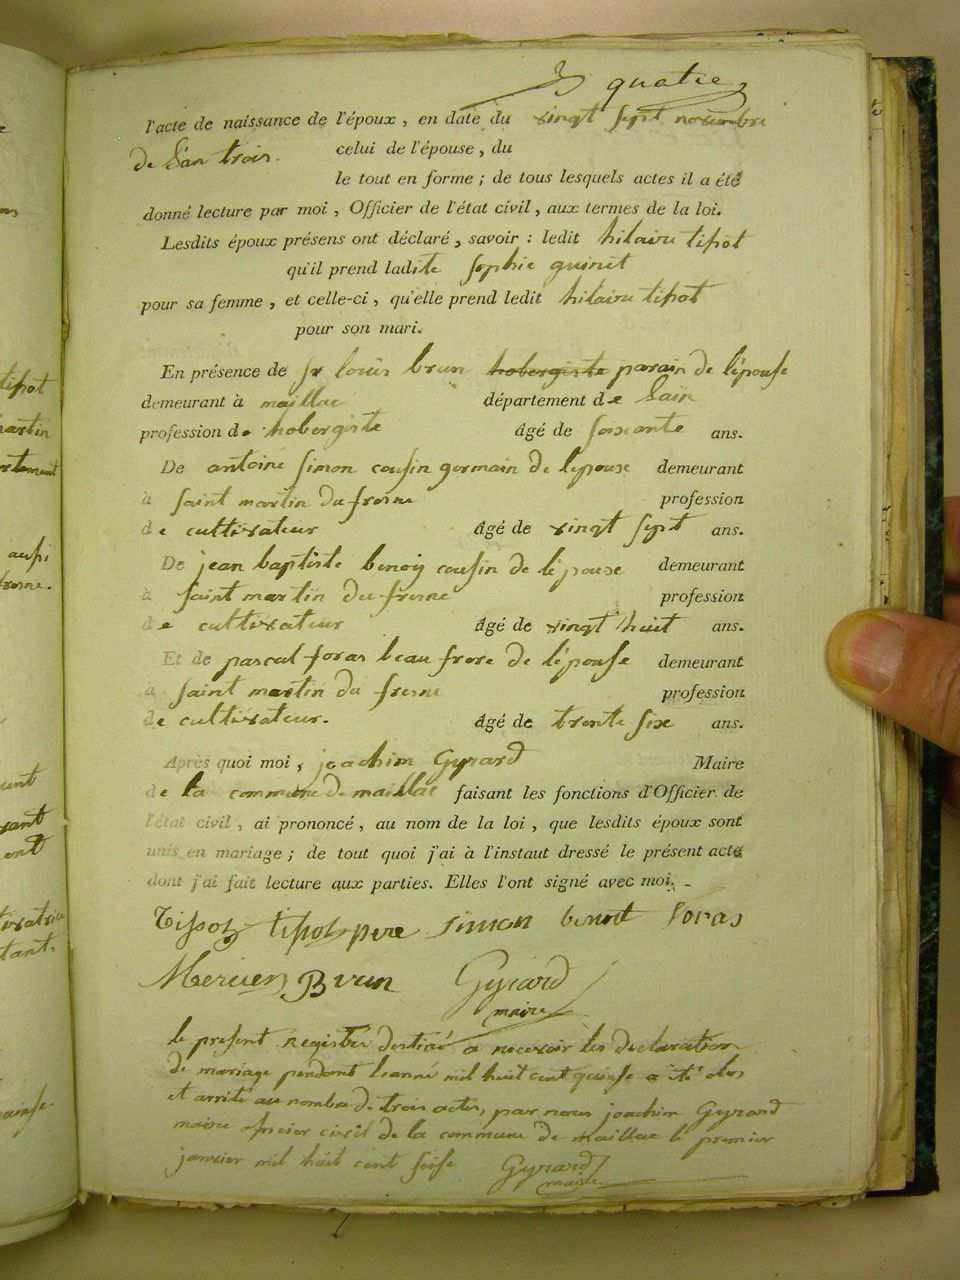 quatre
l'acte de naissance de l'époux, en date du vingt sept novembre
de L'an trois. celui de l'épouse, du
le tout en forme; de tous lesquels actes il a été
donné lecture par moi, Officier de l'état civil, aux termes de la loi.
Lesdits époux présens ont déclaré, savoir: ledit hilaire tissot
qu'il prend ladite sophie guinet
pour sa femme, et celle-ci, qu'elle prend ledit hilaire tissot
pour son mari.
En présence de sr louis brun hobergiste parain de l'épouse
demeurant à maillac département de Lain
profession de hobergiste âgé de soixante ans.
De antoine simon cousin germain de lepouse demeurant
à saint martin du fresne profession
de cultivateur âgé de vingt sept ans.
De jean baptiste benoy cousin de l'épouse demeurant
à saint martin du fresne profession
de cultivateur âgé de vingt huit ans.
Et de pascal foras beau frere de l'épouse demeurant
à saint martin du fresne profession
de cultivateur. âgé de trente six ans.
Après quoi moi, joachim Gyrard Maire
de la commune de maillac faisant les fonctions d'Officier de
l'état civil, ai prononcé, au nom de la loi, que lesdits époux sont
unis en mariage; de tout quoi j'ai à l'instaut dressé le présent acte
dont j'ai fait lecture aux parties. Elles l'ont signé avec moi.
Tissot tissot pere simon benoit foras
Mercier Brun Gyrard
maire
le present registre destiné a recevoir les declaration
de mariage pendant leanné mil huit cent quinse a été clos
et arrité au nombre de trois actes, par nous joachim Gyrard
maire officier civil de la commune de maillac le premier
janvier mil huit cent seise Gyrard
maire